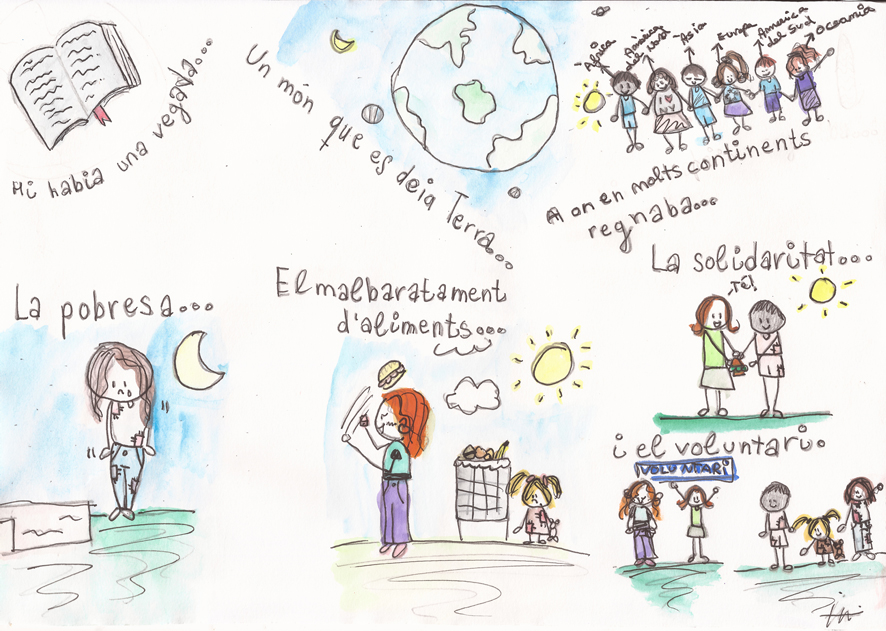 Hi habia una vegada...
Un món que es deia Terra...
Africa
America del Nord
Asia
Europa
America del Sud
Oceania
I ♥ NY
A on en molts continents
regnaba...
La pobresa...
El malbaratament
d'aliments...
La solidaritat...
Té!
i el voluntari.
VOLUNTARI